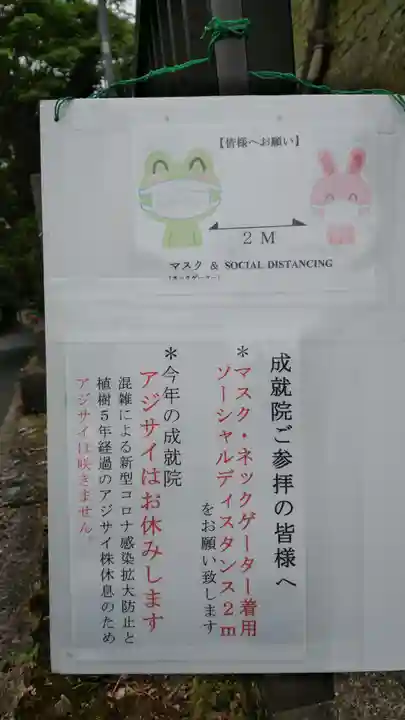 【皆様へお願い】
2 M
マスク & SOCIAL DISTANCING
(ネックゲーター)
成就院ご参拝の皆様へ
*マスク・ネックゲーター着用
ソーシャルディスタンス2m
をお願い致します
*今年の成就院
アジサイはお休みします
混雑による新型コロナ感染拡大防止と
植樹5年経過のアジサイ株休息のため
アジサイは咲きません。